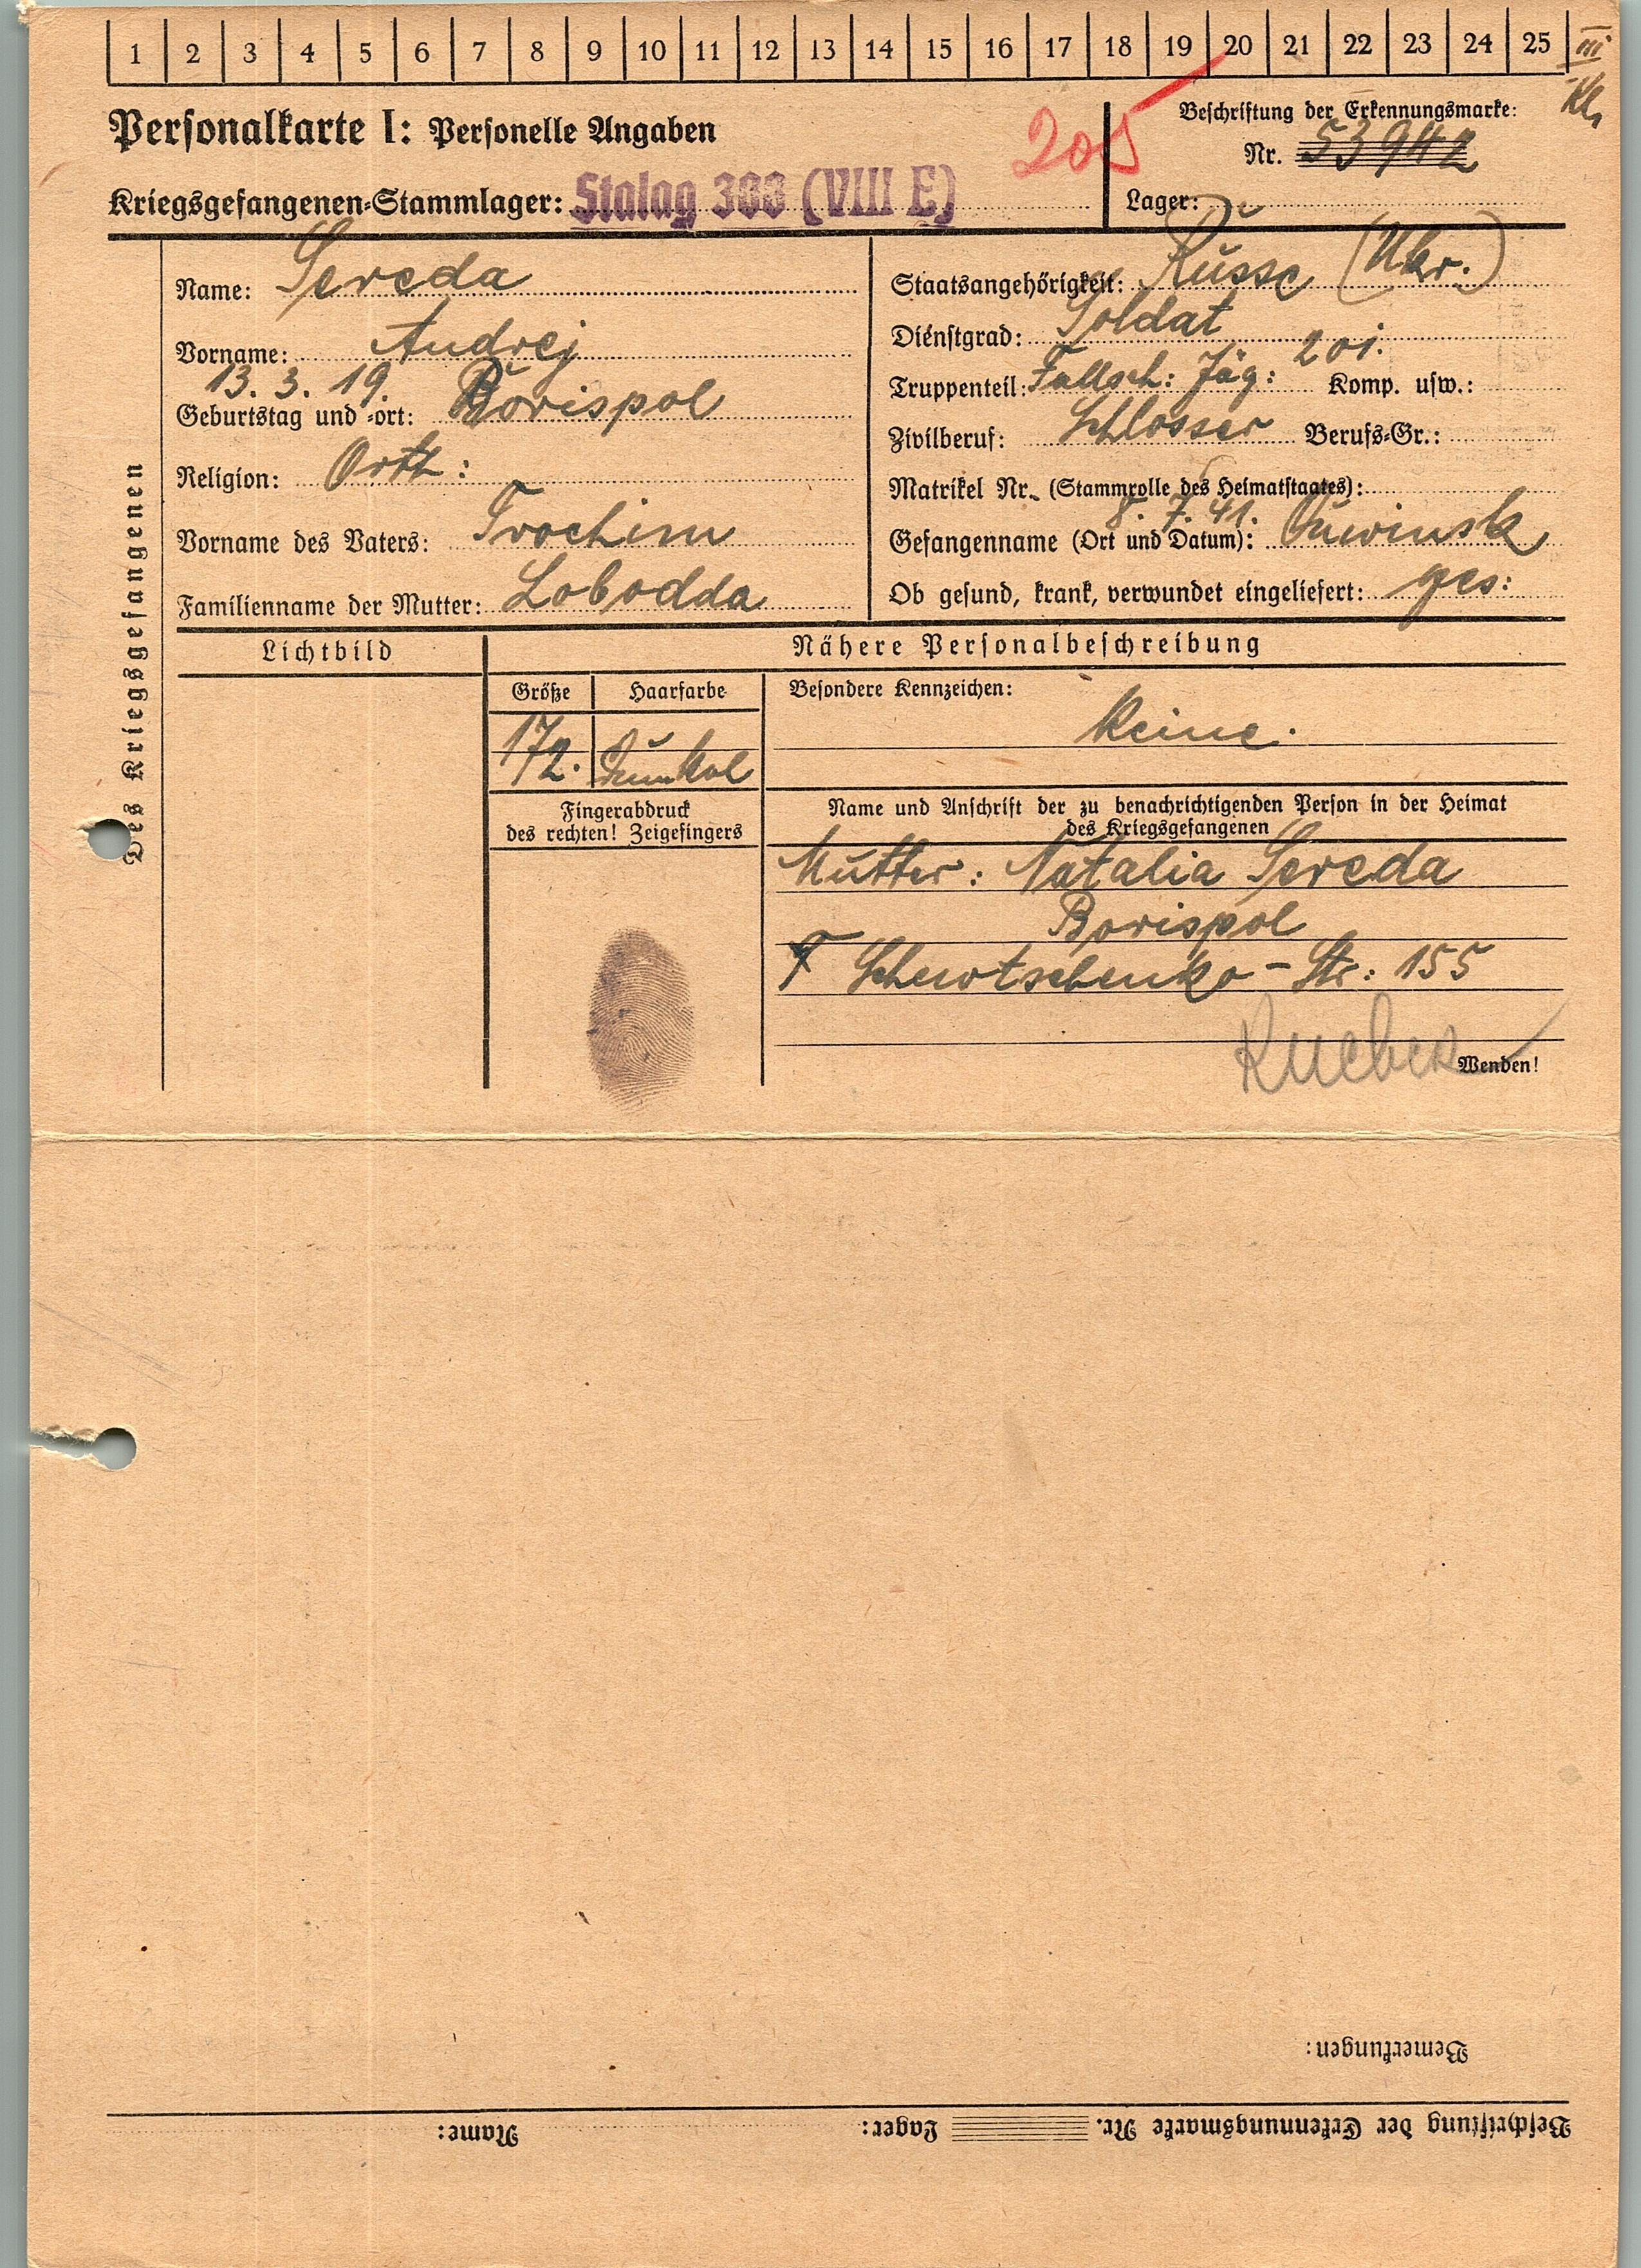 1 2 3 4 5 6 7 8 9 10 11 12 13 14 15 16 17 18 19 20 21 22 23 24 25 III
Kl.
Personalkarte I: Personelle Angaben
205
Beschriftung der Erkennungsmarke:
Nr. 53942
Kriegsgefangenen-Stammlager: Stalag 308 (VIII E)
Lager:
Des Kriegsgefangenen
Name: Sereda
Vorname: Andrej
13. 3. 19.
Geburtstag und -ort: Borispol
Religion: Orth:
Vorname des Vaters: Trochim
Familienname der Mutter: Lobodda
Staatsangehörigkeit: Russe (Ukr.)
Dienstgrad: Soldat
Truppenteil: Fallsch: Jäg: 201. Komp. usw.:
Zivilberuf: Schlosser Berufs-Gr.:
Matrikel Nr. (Stammrolle des Heimatstaates):
8. 7. 41.
Gefangenname (Ort und Datum):
Ob gesund, krank, verwundet eingeliefert: ges:
Lichtbild
Nähere Personalbeschreibung
Größe Haarfarbe
172. Dunkel
Besondere Kennzeichen:
Keine.
Fingerabdruck
des rechten! Zeigefingers
Name und Anschrift der zu benachrichtigenden Person in der Heimat
des Kriegsgefangenen
Mutter: Natalia Sereda
Borispol
Schewtschenko-Str: 155
Wenden!
Bemerkungen:
Beschriftung der Erkennungsmarke Nr. Lager: Name: